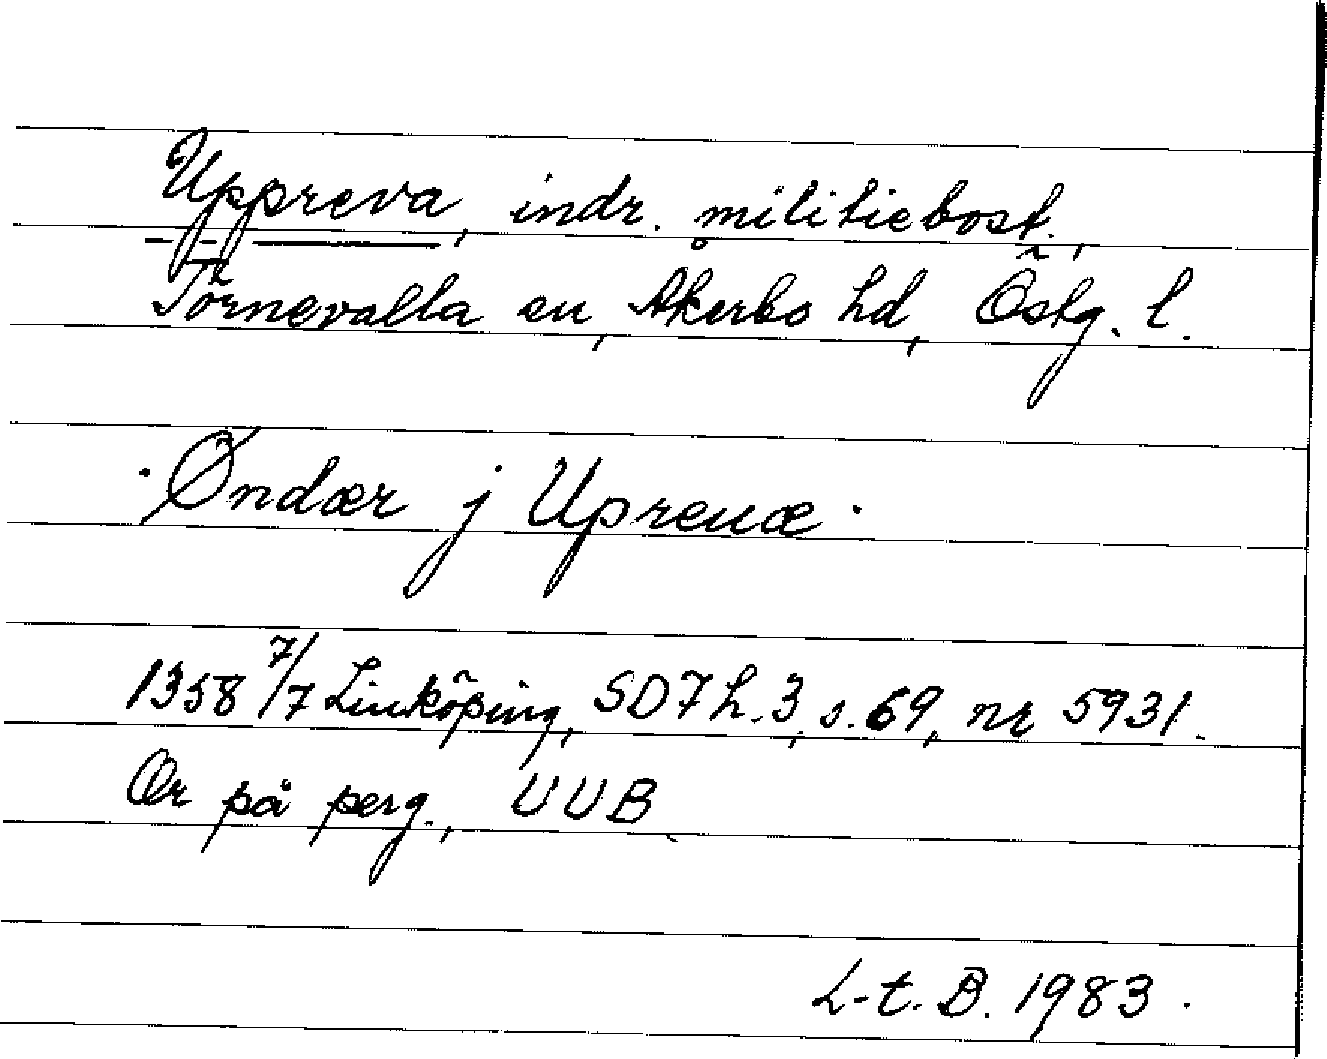 Uppreva, indr. militiebost.,
Törnevalla sn, Åkerbo hd, Östg. l.
·Øndær j Upreuæ·
1358 7/7 Linköping, SD7 h.3, s.69, nr 5931.
Or på perg., UUB.
L-t. B. 1983.